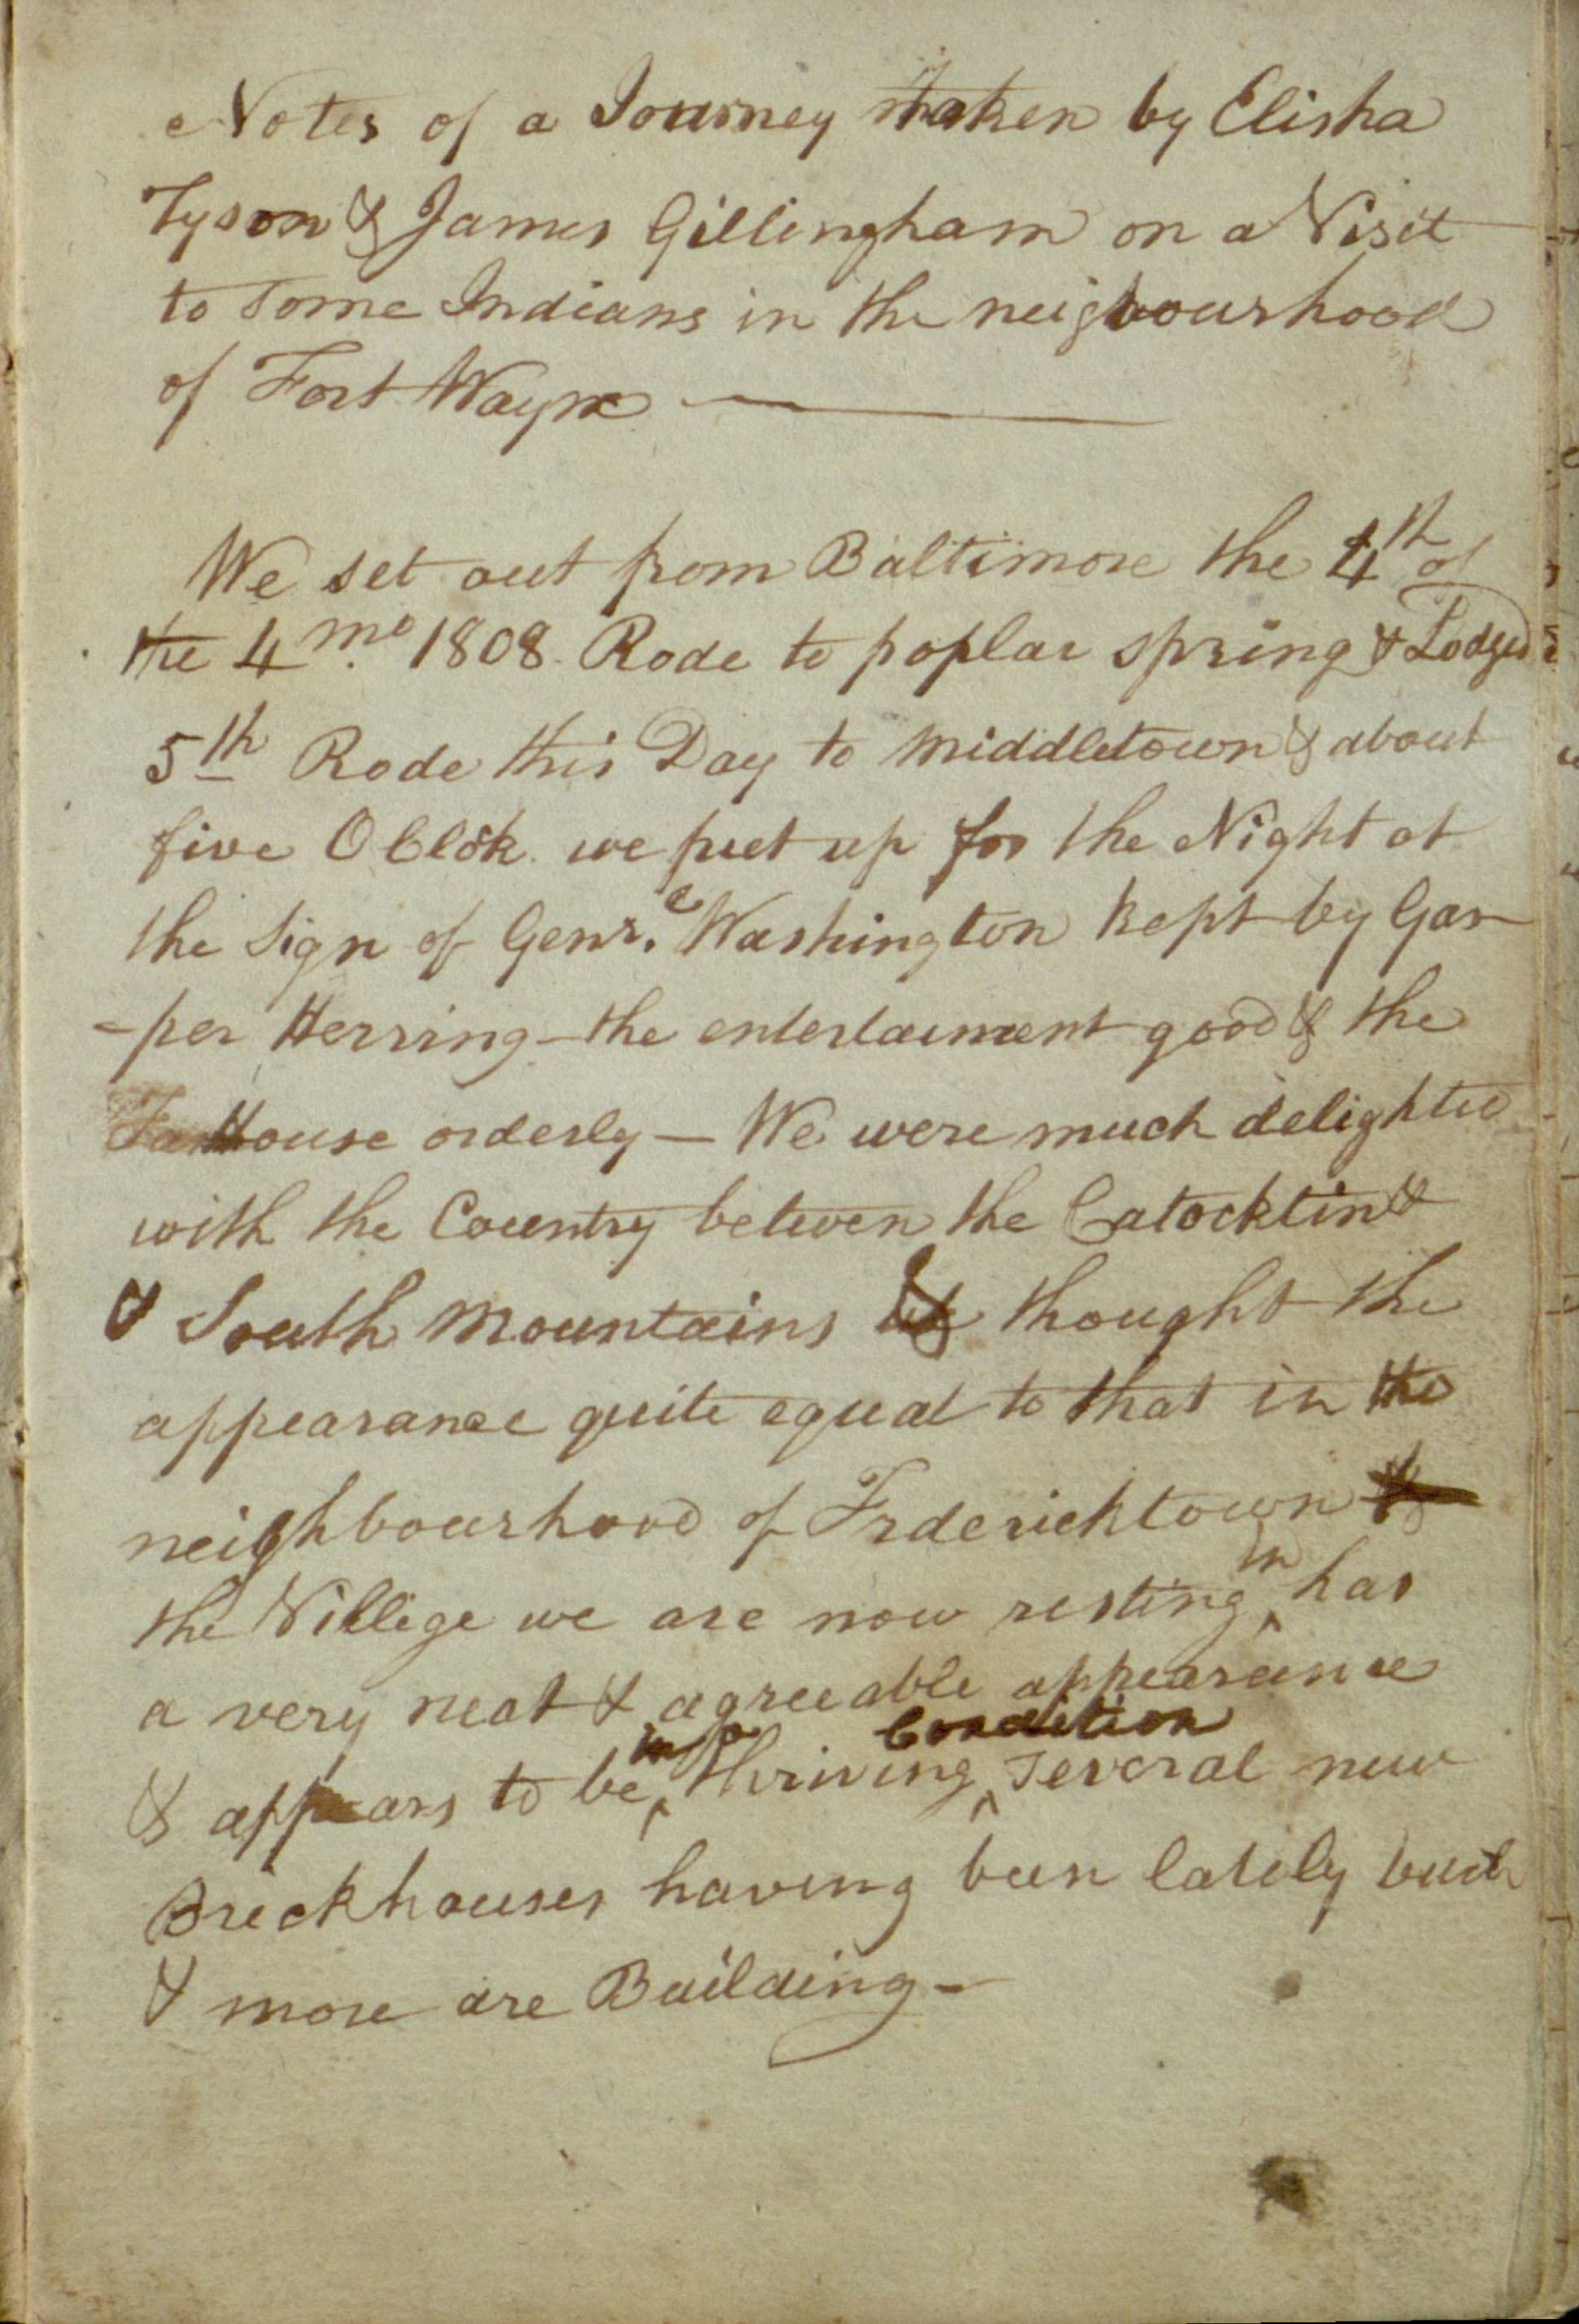 Notes of a Journey taken by Elisha
Tyson & James Gillingham on a Visit
to some Indians in the neigbourhood
of Fort Wayne
We set out from Baltimore the 4th of
the 4 mo. 1808 Rode to poplar spring & Lodged
5th Rode this Day to middletown & about
five OClok we put up for the Night at
the Sign of Genr.l Washington kept by Gas
-per Herring the entertainment good & the
House orderly — We were much delighted
with the Country between the Catocktin &
& South mountains & thought the
appearance quite equal to that in the
neighbourhood of Frdericktown
the Villege we are now resting in has
a very neat & agreeable appearance
& appears to be in a thriving Condition several new
Brickhouses having been lately built
& more are Building -